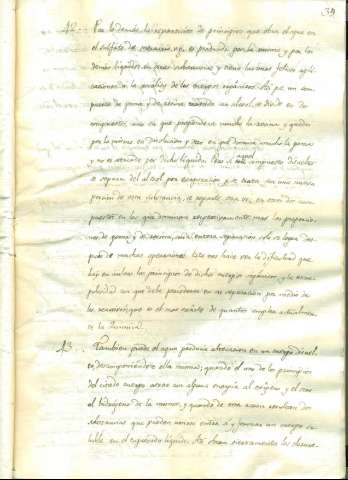 39
42.. Por lo demas la separacion de principios que obra el agua en
el sulfato de potasio, se produce por la misma, y por los
demas liquidos en otras substancias, y tiene las mas felices apli-
caciones a la analisis de los cuerpos organicos. Asi pe. un com-
puesto de goma y de resina tratado con alcool, se divide en dos
compuestos, uno en que predomina mucho la resina y queda
por lo mismo en disolucion, y otro en que domina mucho la goma
y no es atacado por dicho liquido. Si el compuesto disuelto
se separa del alcool por evaporacion y se trata con una nueva
porcion de esta substancia, se separa otra vez en otros dos com-
puestos en los que dominan respectivamente mas las proporcio-
nes de goma y de resina, cuya entera separacion solo se logra des-
pues de muchas operaciones. Esto nos hace ver la dificultad que
hay en aislar los principios de dichos cuerpos organicos, y la escru-
pulosidad con que debe procederse en su separacion por medio de
los menstruos, que es el mas exacto de quantos emplea actualmen-
te la quimica.
43.. Tambien puede el agua producir alteracion en un cuerpo disuel-
to, descomponiendose ella misma, quando el uno de los principios
del citado cuerpo exerce alguna energia al oxigeno y el otro
al hidrogeno de la misma, y quando de esta accion resultan dos
substancias que pueden unirse entre sí y formar un cuerpo so-
luble en el expresado liquido. Asi obran ciertamente los cloruros